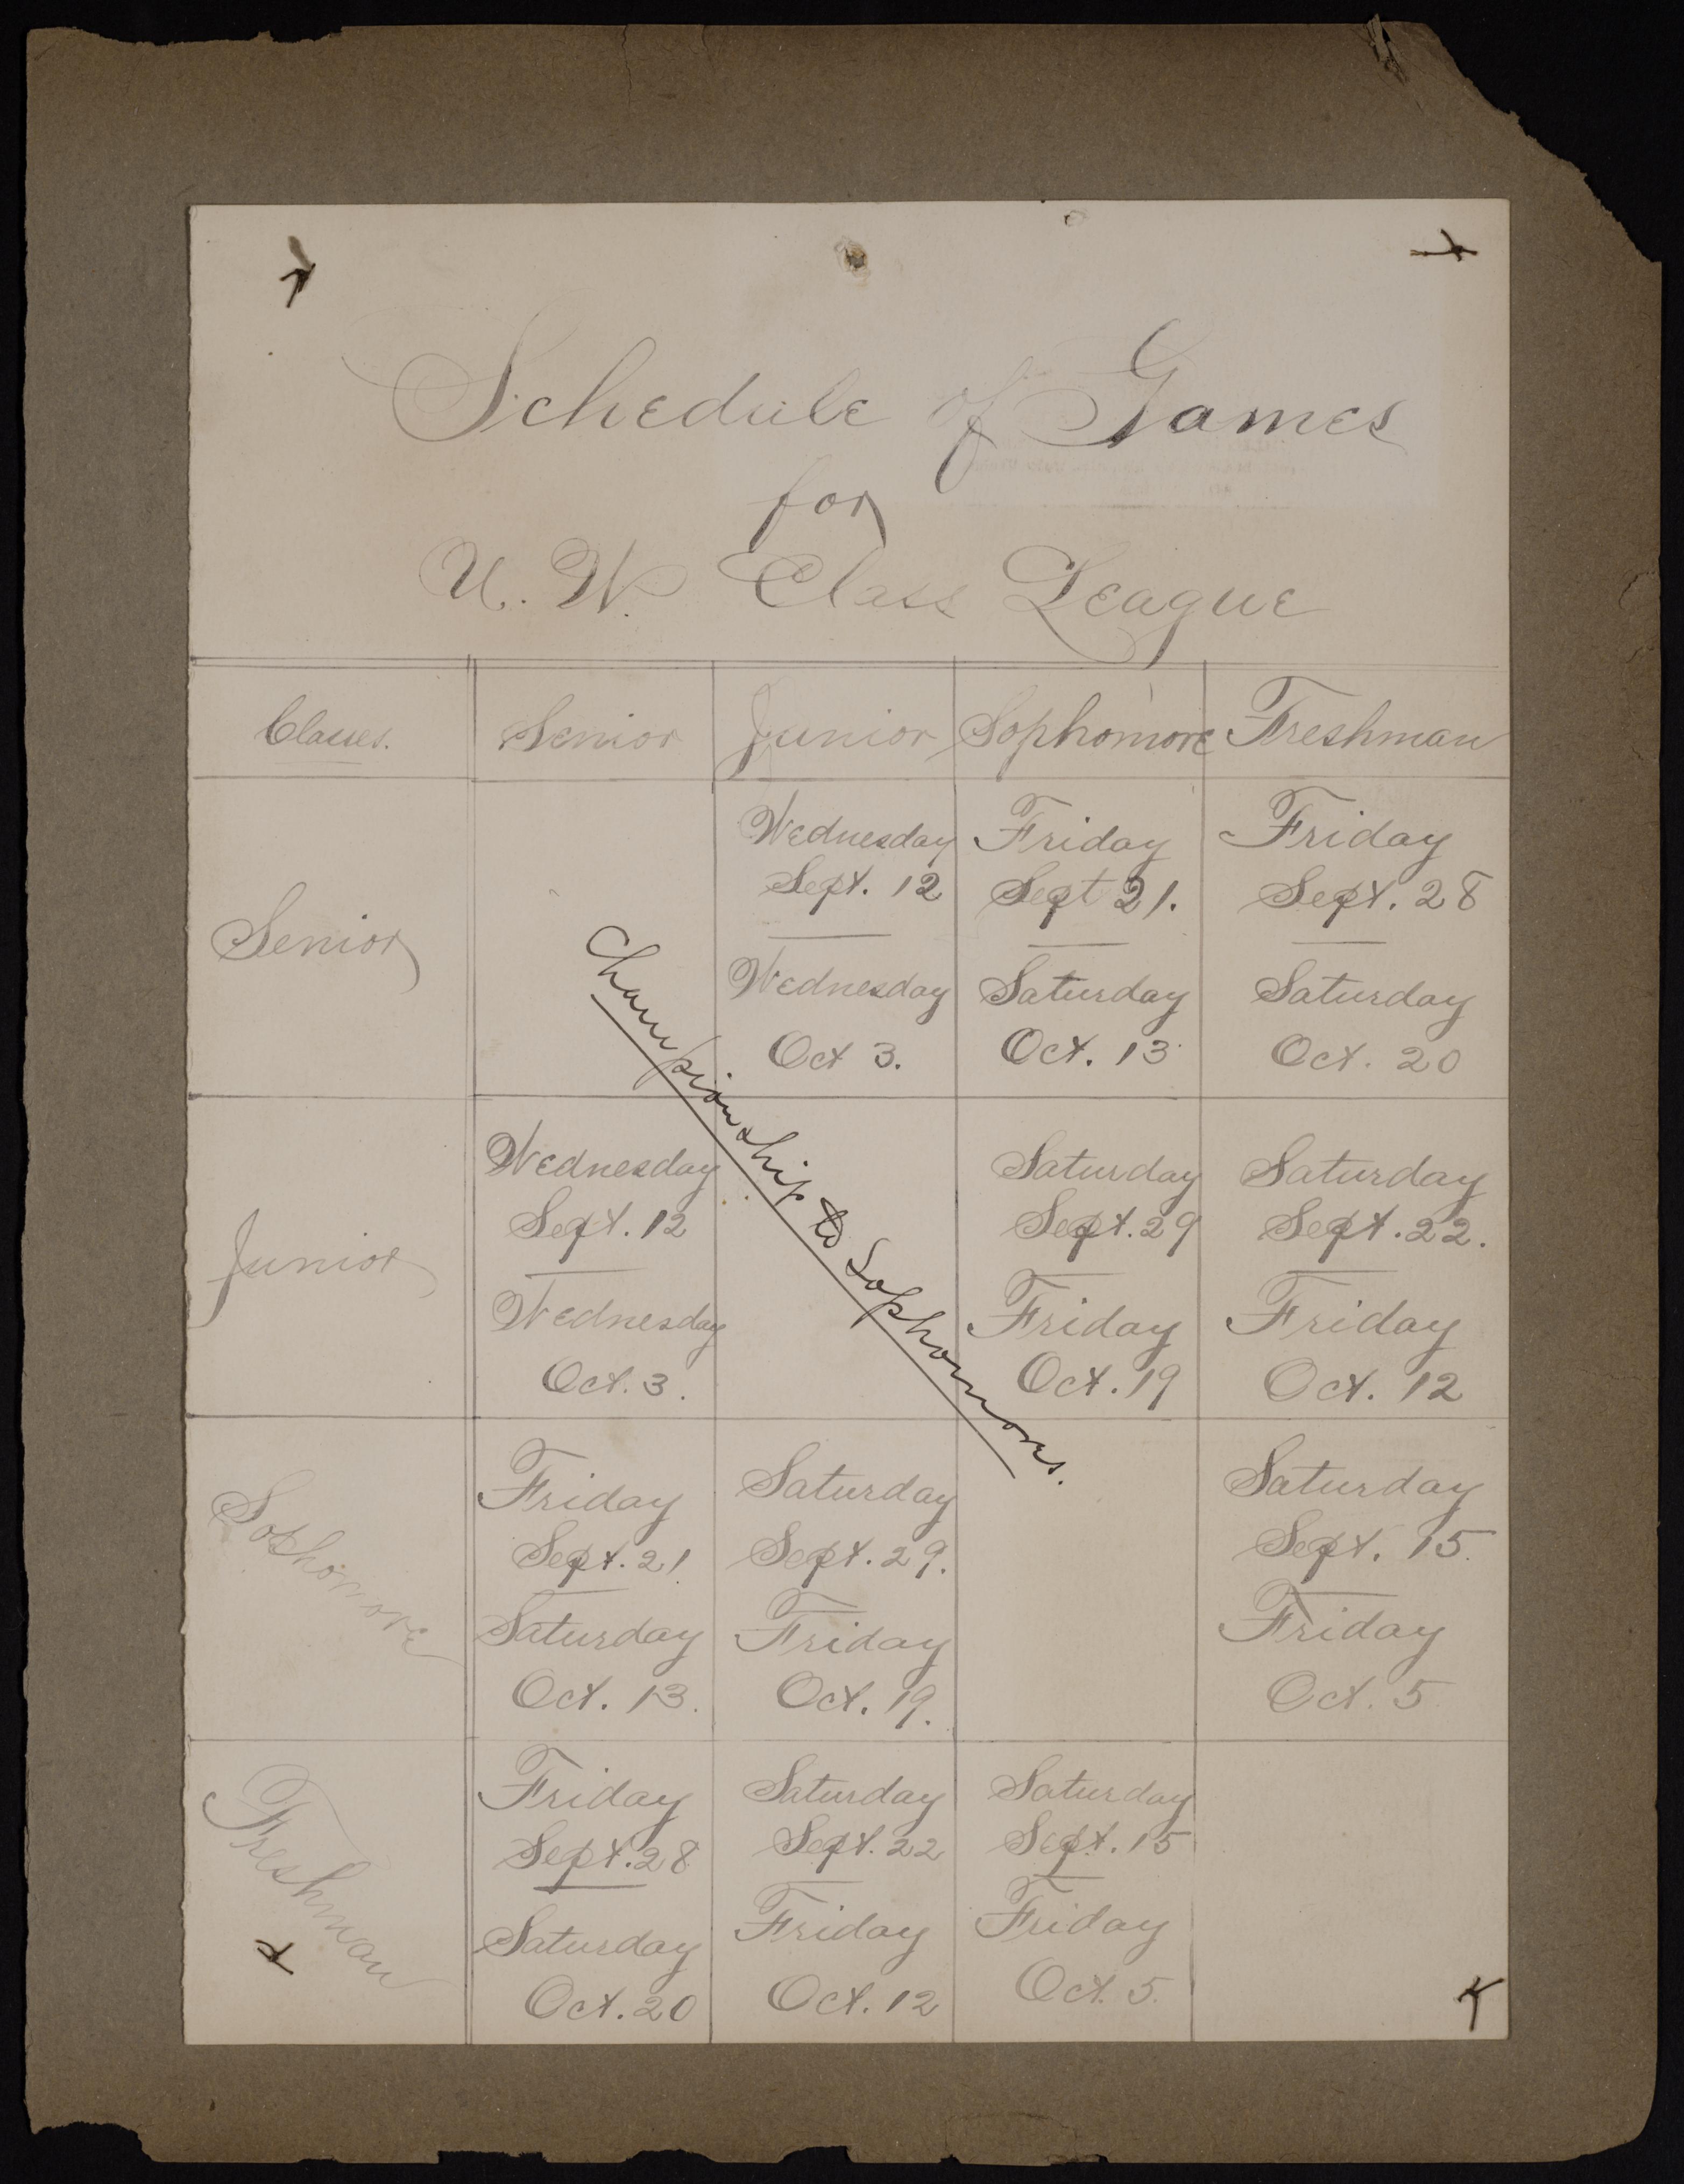 Schedule of Games
for
U. W. Class League
Classes. Senior Junior Sophomore Freshman
Senior
Wednesday
Sept. 12
Wednesday
Oct 3.
Friday
Sept 21.
Saturday
Oct. 13
Friday
Sept. 28
Saturday
Oct. 20
Junior
Wednesday
Sept. 12
Wednesday
Oct. 3.
Saturday
Sept. 29
Friday
Oct. 19
Saturday
Sept. 22.
Friday
Oct. 12
Sophomore
Friday
Sept. 21
Saturday
Oct. 13.
Saturday
Sept. 29.
Friday
Oct. 19.
Saturday
Sept. 15.
Friday
Oct. 5
Freshman
Friday
Sept. 28
Saturday
Oct. 20
Saturday
Sept. 22
Friday
Oct. 12
Saturday
Sept. 15
Friday
Oct. 5.
Championship to Sophomores.